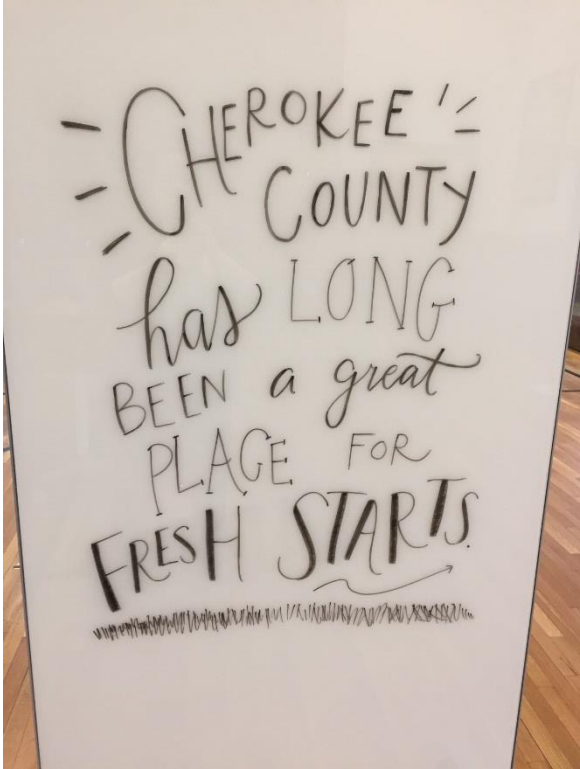 CHEROKEE
COUNTY
has LONG
BEEN a great
PLACE FOR
FRESH STARTS.